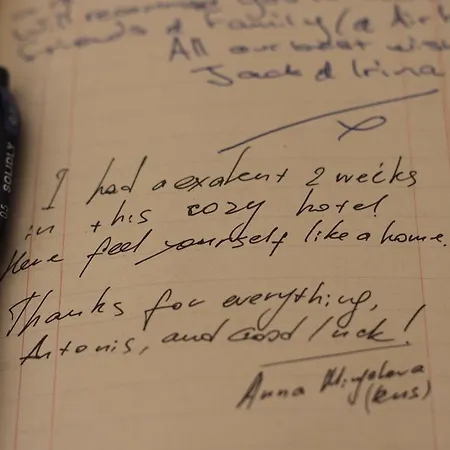 Will recommend you to
Friends & Family
All our best
Jack & Irina
x
I had a exalent 2 weeks
in this cozy hotel!
Here feel yourself like a home.
Thanks for everything,
Antonis, and Good luck!
Anna
(Rus)